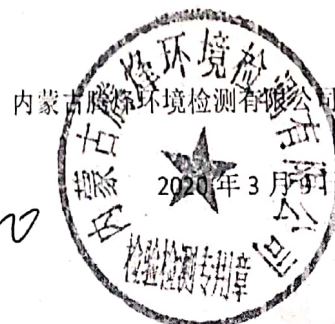 内蒙古腾烽环境检测有限公司
2020 年 3 月 9 日
内蒙古腾烽环境检测有限公司
检验检测专用章